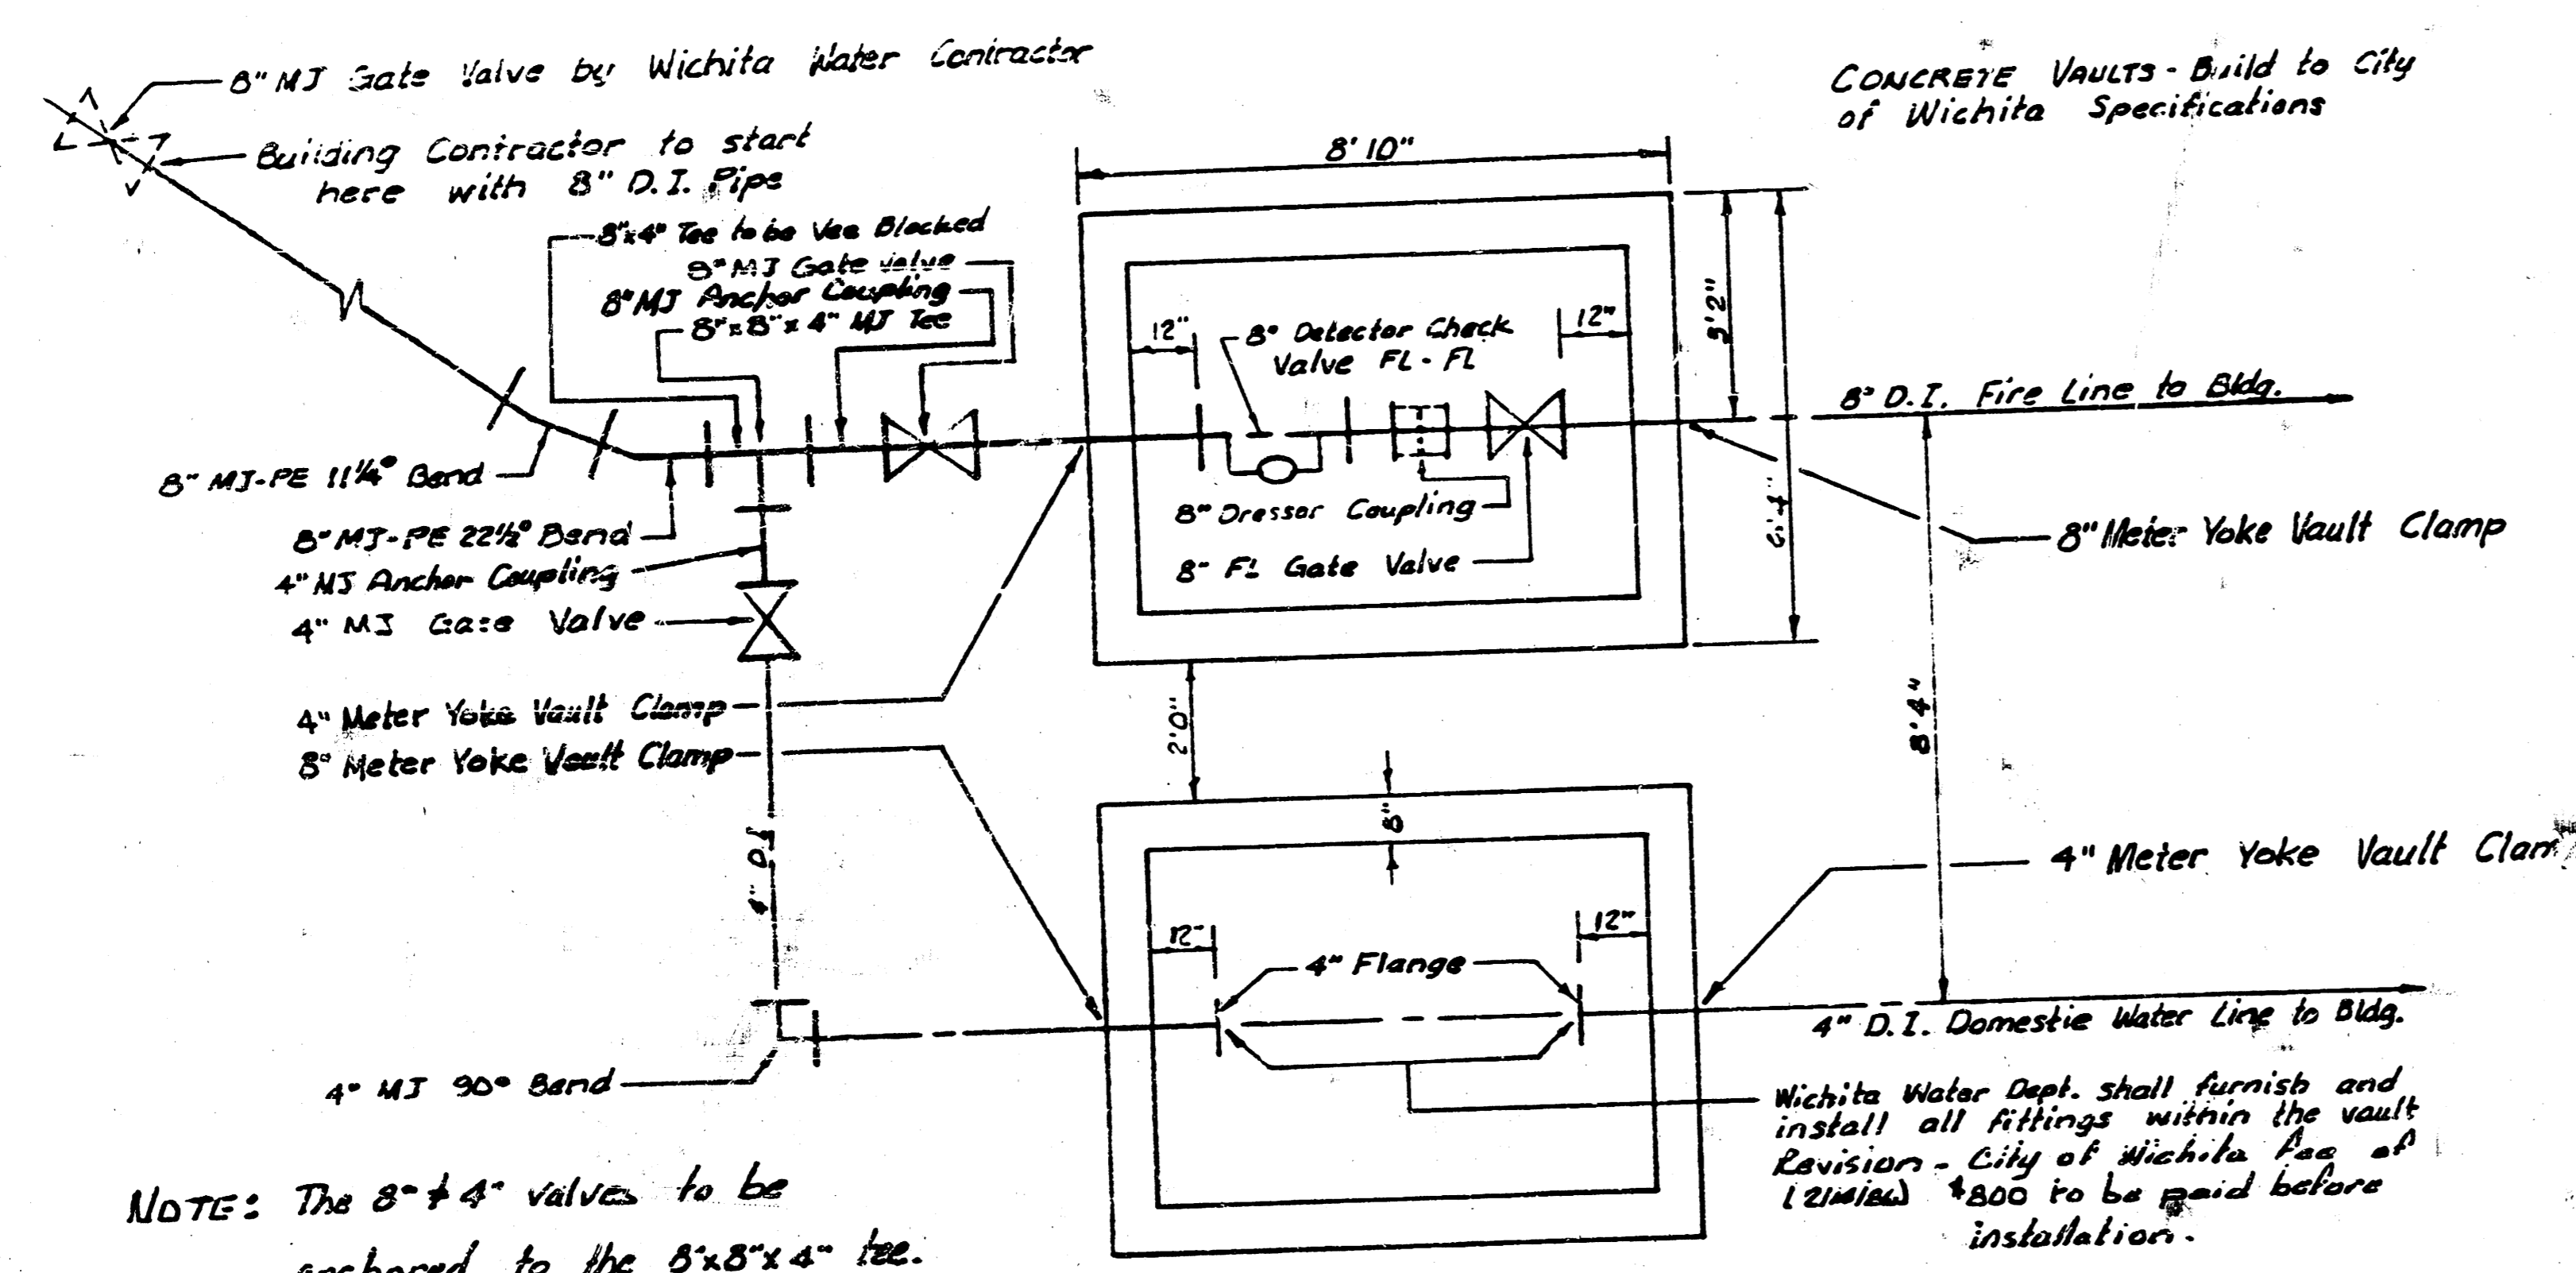 8" MJ Gate Valve by Wichita Water Contractor
Building Contractor to start
here with 8" D.I. Pipe
CONCRETE VAULTS - Build to City
of Wichita Specifications
8'10"
8"x4" Tee to be Vee Blocked
8" MJ Gate Valve
8" MJ Anchor Coupling
8"x8"x4" MJ Tee
12"
8" Detector Check
Valve FL-FL
12"
3'2"
6'4"
8" D.I. Fire Line to Bldg.
8" MJ-PE 11¼° Bend
8" MJ-PE 22½° Bend
4" MJ Anchor Coupling
4" MJ Gate Valve
8" Dresser Coupling
8" FL Gate Valve
8" Meter Yoke Vault Clamp
4" Meter Yoke Vault Clamp
8" Meter Yoke Vault Clamp
2'0"
8'4"
8"
4" D.I.
4" Meter Yoke Vault Clam
12"
12"
4" Flange
4" D.I. Domestic Water Line to Bldg.
4" MJ 90° Bend
Wichita Water Dept. shall furnish and
install all fittings within the vault
Revision - City of Wichita fee of
$800 to be paid before
installation.
NOTE: The 8" & 4" valves to be
anchored to the 8"x8"x4" tee.